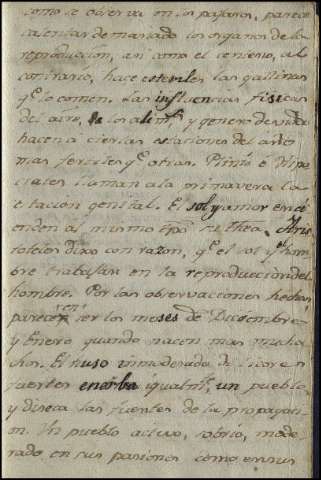 como se observa en los pajaros, parece
calentar demaciado los organos de la
reproduccion, asi como el centeno, al
contrario, hace esteriles las gallinas
qe lo comen. Las influencias fisicas
del aire, los alimtos y genero de vida
hacen á ciertas estaciones del año
mas fertiles qe otras. Plinio e Hipo
crates llaman a la primavera la
estacion genital. El sol y amor encié
enden al mismo tpo su thea. Aris
toteles dixo con razon, qe el sol y el hom
bre trabajan en la reproduccion del
hombre. Por las observaciones hechas,
parecen ser los meses de Diciembre
y Enero quando nacen mas mucha
chos. El uso inmoderado de licores
fuertes enerba igualmte, un pueblo,
y diseca las fuentes de la propagacio
n. Un pueblo activo, sobrio, mode
rado en sus pasiones como en sus